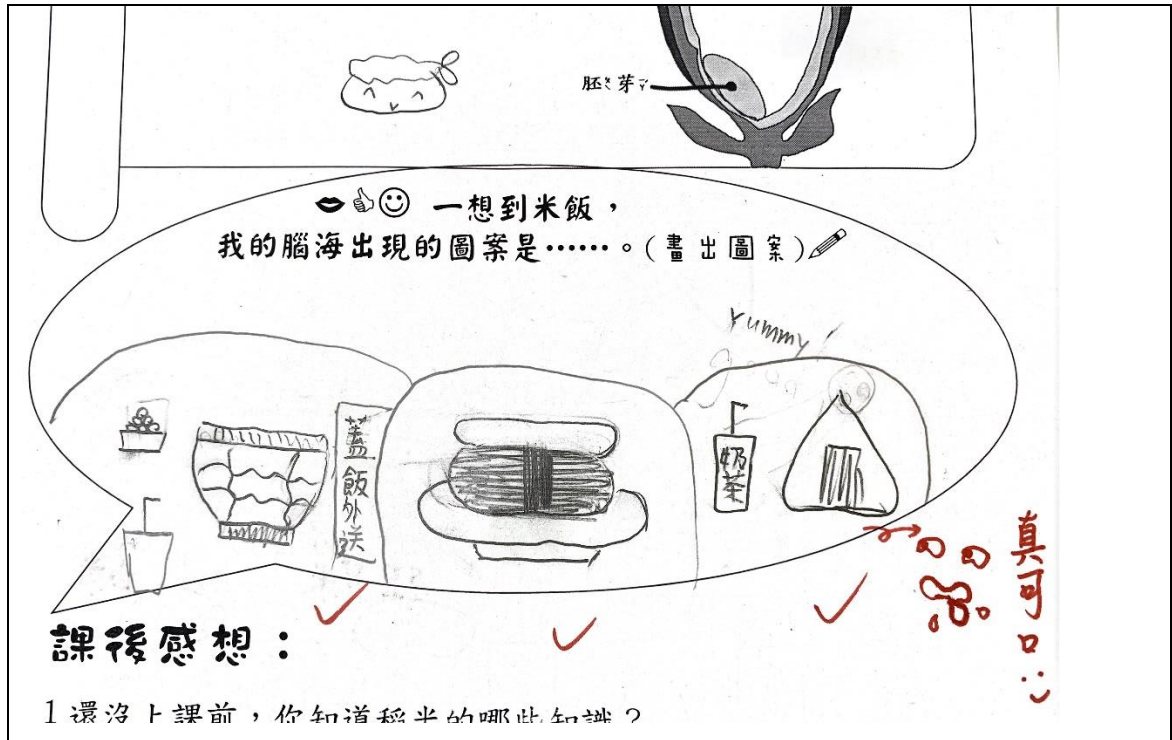 胚ㄆㄟ芽ㄧㄚˊ
一想到米飯，
我的腦海出現的圖案是……。(畫出圖案)
Yummy!
蓋飯外送
奶茶
真可口
課後感想：
1 還沒上課前，你知道稻米的哪些知識？